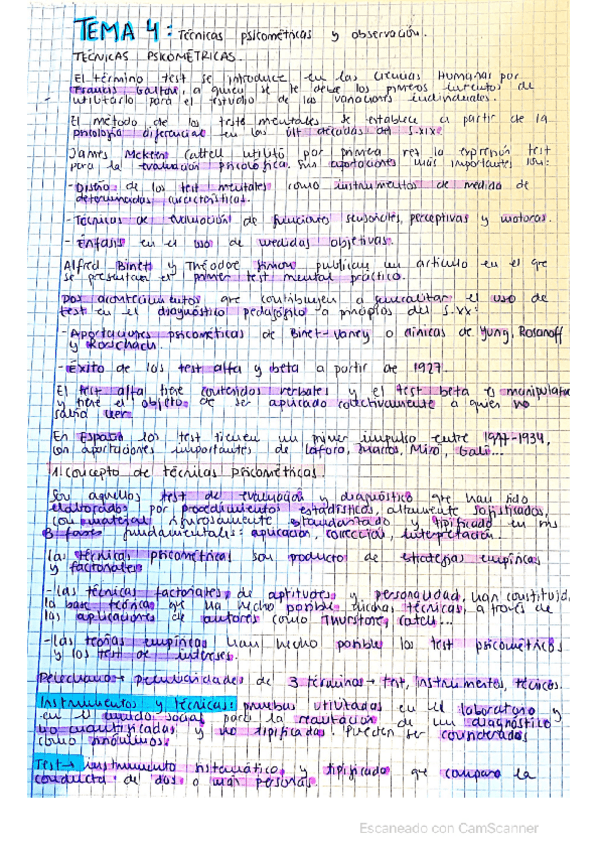 TEMA 4: Técnicas psicométricas y observación.
TÉCNICAS PSICOMÉTRICAS.
El término test se introduce en las Ciencias Humanas por
Francis Galton, a quien se le debe los primeros intentos de
utilizarlo para el estudio de las variaciones individuales.
El método de los tests mentales se establece a partir de la
psicología diferencial en las últ décadas del s.XIX.
James McKeen Cattell utilizó por primera vez la expresión test
para la evaluación psicológica. Sus aportaciones más importantes son:
- Diseño de los test mentales como instrumentos de medida de
determinadas características.
- Técnicas de evaluación de funciones sensoriales, perceptivas y motoras.
- Énfasis en el uso de medidas objetivas.
Alfred Binet y Théodore Simon publican un artículo en el que
se presentan el primer test mental práctico.
Dos acontecimientos que contribuyen a generalizar el uso de
test en el diagnóstico pedagógico a principios del S.XX:
- Aportaciones psicométricas de Binet- o clínicas de Yung, Rosanoff
y Rorschach.
- Éxito de los test alfa y beta a partir de 1927.
El test alfa tiene contenidos verbales y el test beta es manipulativo
y tiene el objeto de ser aplicado colectivamente a quien no
sabía leer
En España los test tienen un primer impulso entre
con aportaciones importantes de Lafora, Mira, Galí...
1. Concepto de técnicas psicométricas.
Son aquellos test de evaluación y diagnóstico que han sido
elaborados por procedimientos estadísticos, altamente sofisticados,
con material rigurosamente estandarizado y tipificado en sus
3 fases fundamentales: aplicación, corrección, interpretación...
Las técnicas psicométricas son producto de estrategias empíricas
y factoriales
- Las técnicas factoriales, de aptitudes y personalidad, han constituido,
la base teórica que ha hecho posible dichas técnicas, a través de
las aplicaciones de autores como Thurstone, Catell...
- Las teorías empíricas han hecho posible los test psicométricos
y los test de intereses.
Pelechano → peculiaridades de 3 términos → test, instrumentos, técnicas.
Instrumentos y técnicas: pruebas utilizadas en el laboratorio y
en el mundo social para la realización de un diagnóstico
no cuantificadas y no tipificadas. Pueden ser considerados
como sinónimos.
Test → instrumento sistemático y tipificado que compara la
conducta de dos o más personas.
Escaneado con CamScanner